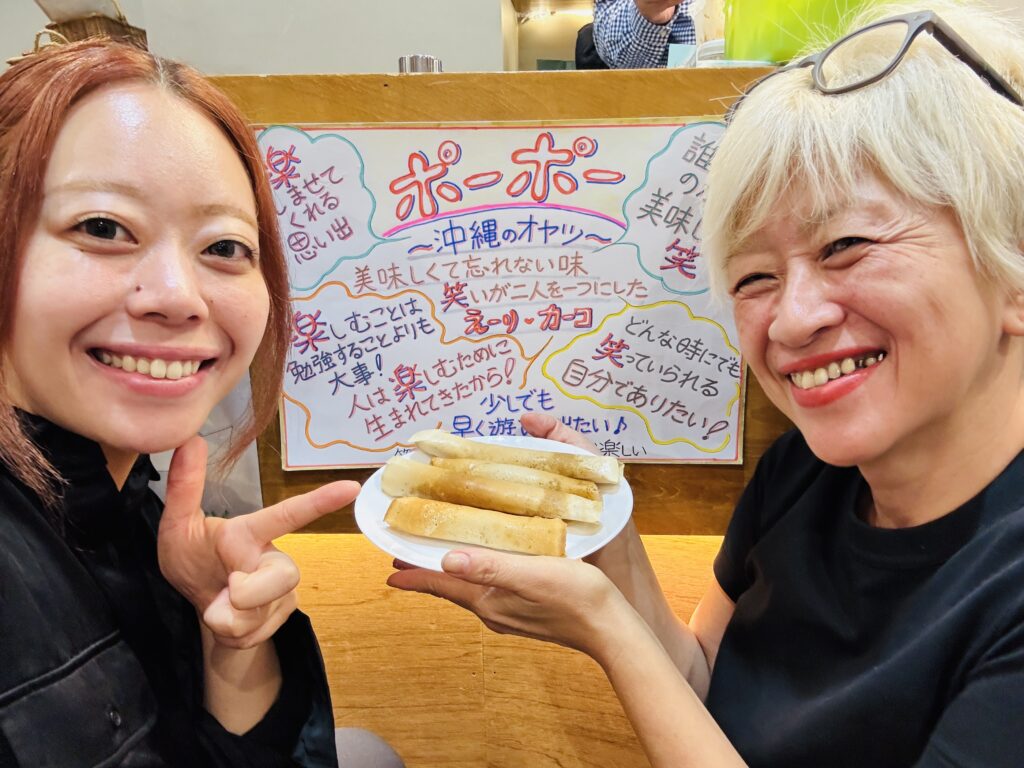 ポーポー
～沖縄のオヤツ～
美味しくて忘れない味
笑いが二人を一つにした
えーり・カーコ
楽しませて
くれる
思い出
誰
の
美味し
笑
楽しむことは
勉強することよりも
大事!
人は楽しむために
生まれてきたから!
どんな時にでも
笑っていられる
自分でありたい!
少しでも
早く遊 出たい♪
楽しい